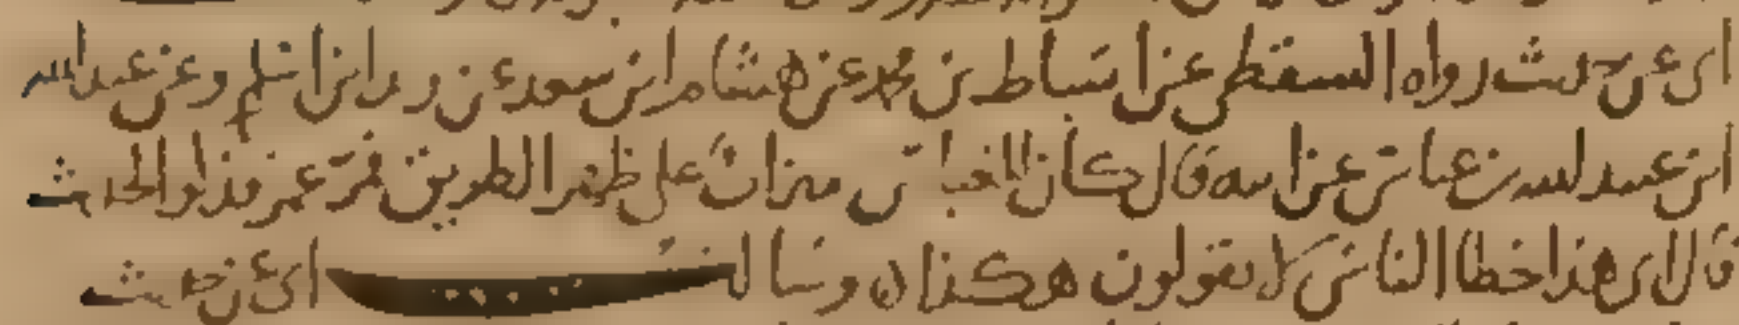 ابي عن حديث رواه السقطي عن اسباط بن محمد عن هشام ابن سعد عن زيد ابن اسلم وعن عبد الله
ابن عبيد الله بن عباس عن ابيه قال كان للعباس ميزاب على ظهر الطريق فمر عمر فذكر الحديث
قال ابي هذا خطا الناس لا يقولون هكذا ه وسالت ابي عن حديث